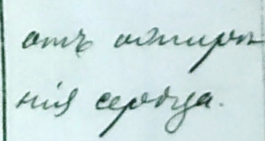 отъ ожирѣ-
нія сердца.